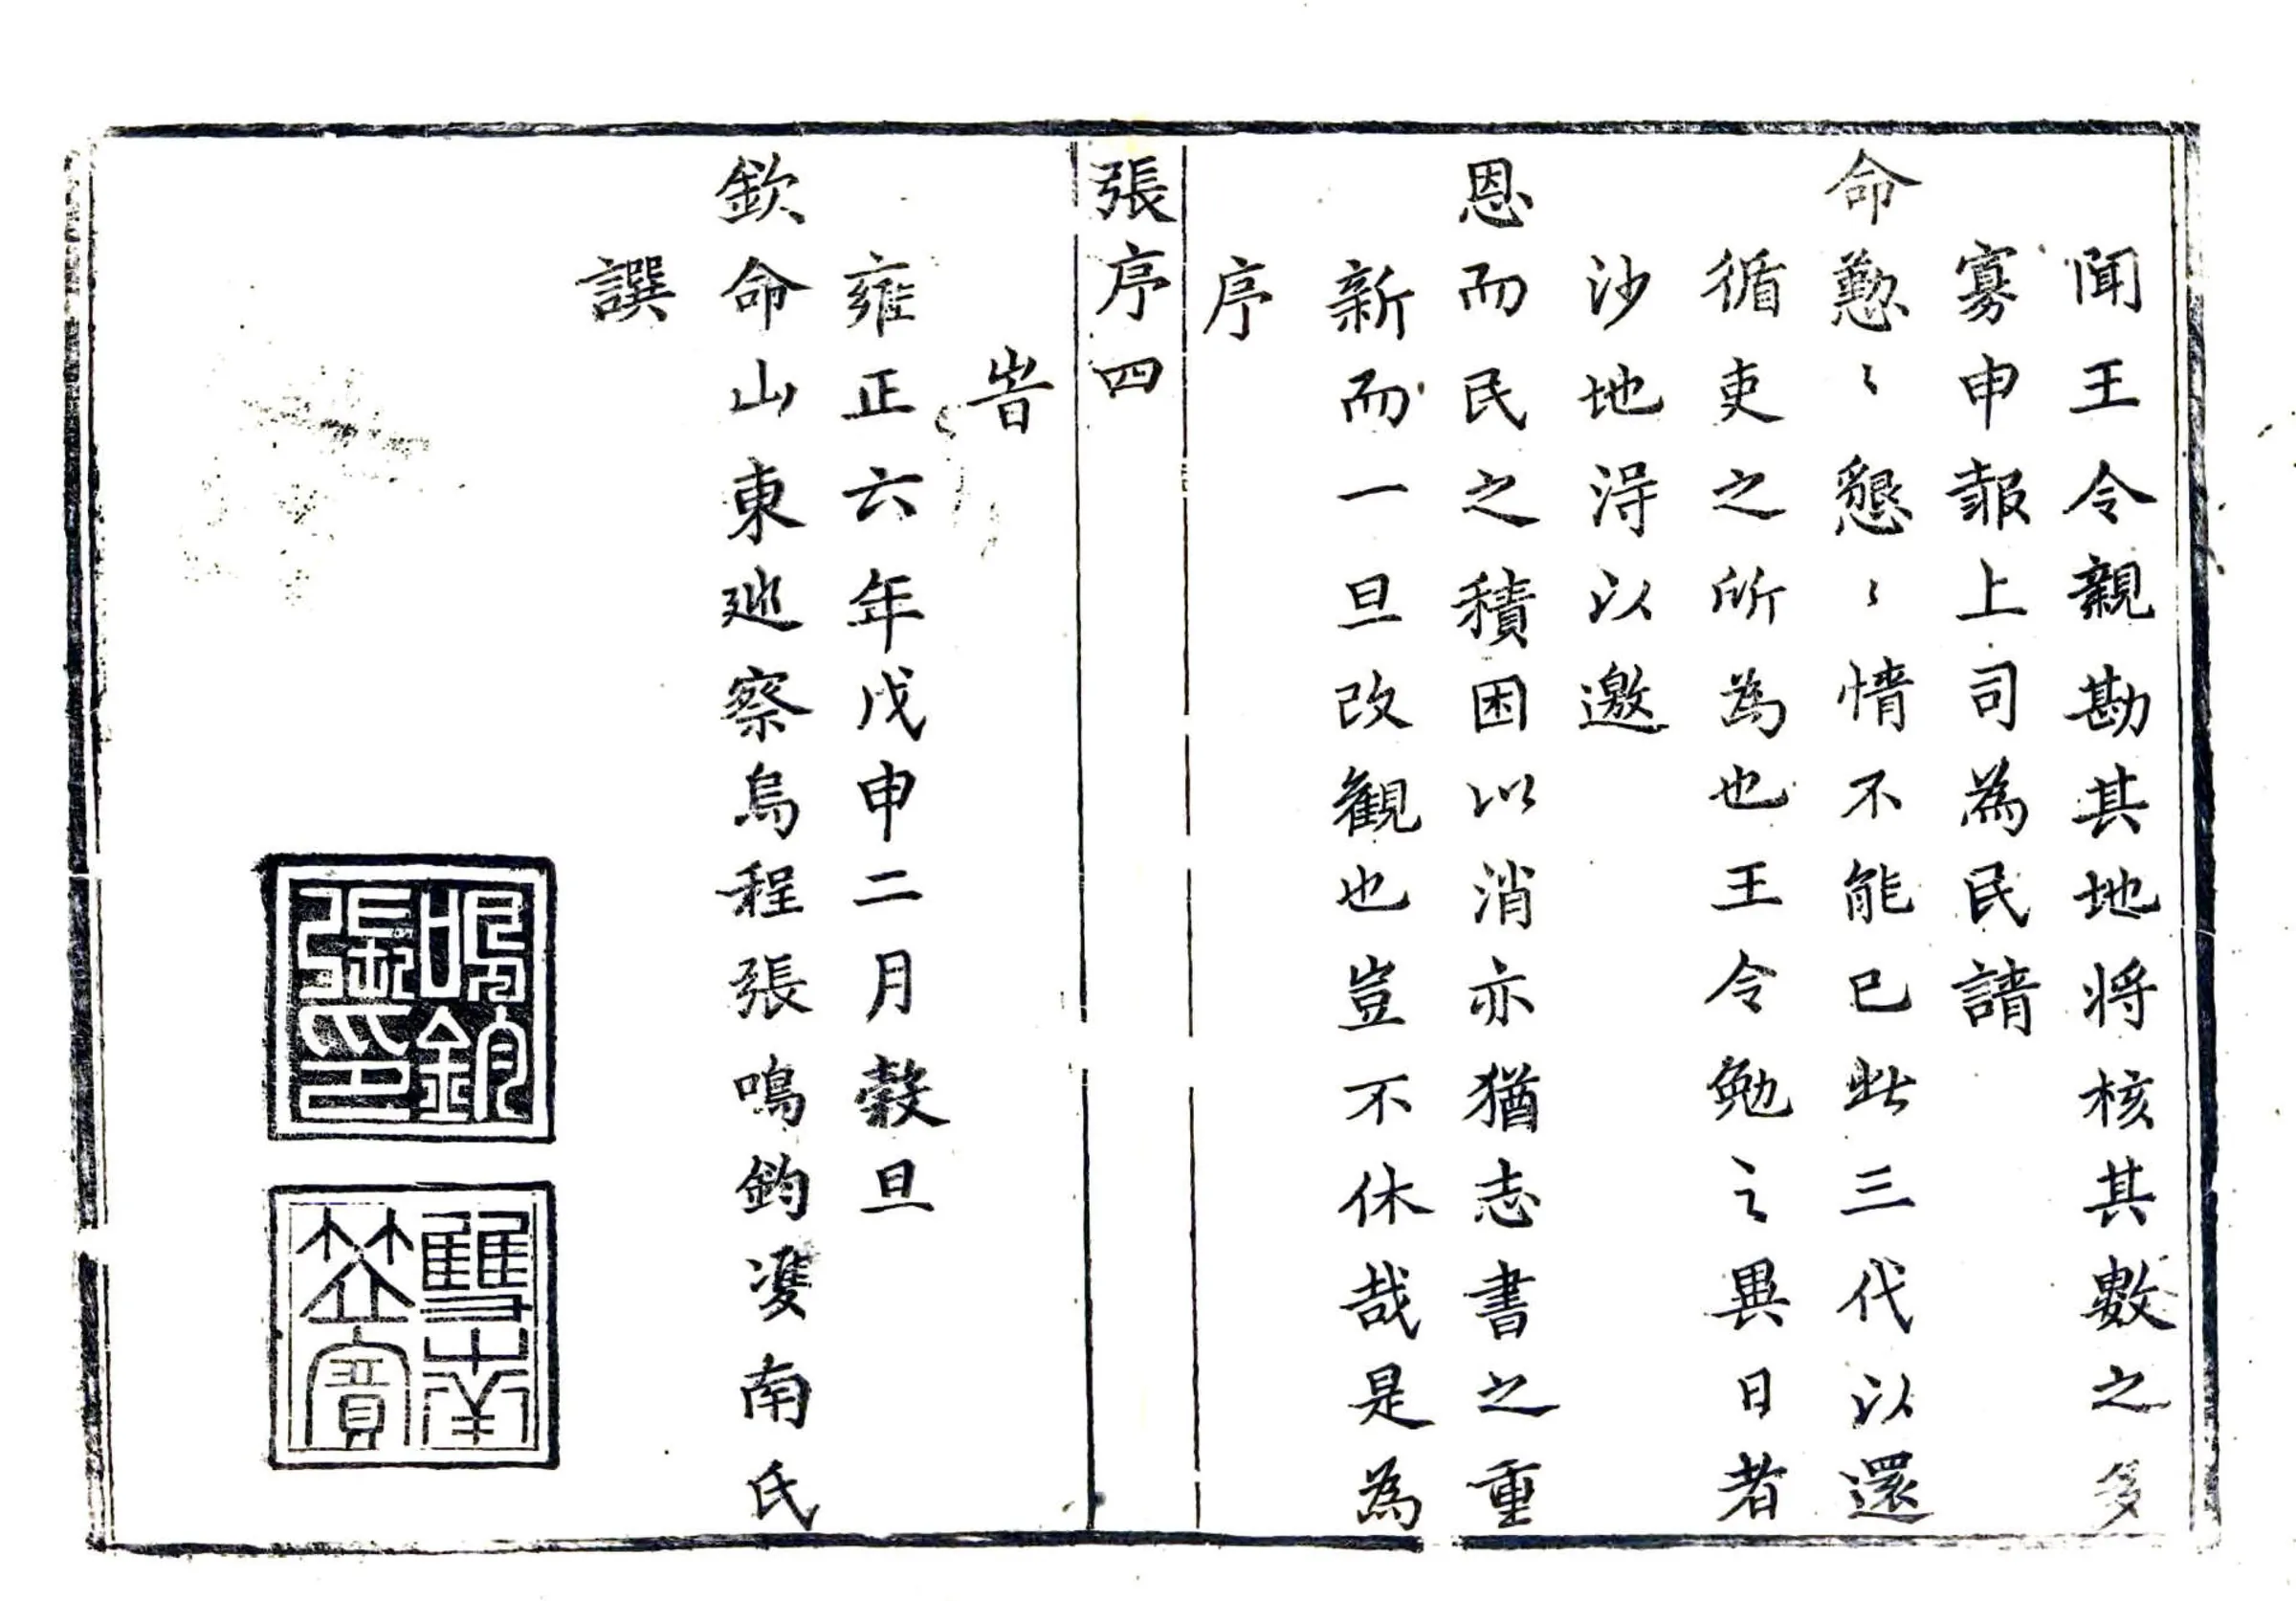 聞王令親勘其地將核其數之多
寡申報上司為民請
命懃〻懇〻情不能已此三代以還
循吏之所為也王令勉之異日者
沙地淂以邀
恩而民之積困以消亦猶志書之重
新而一旦改觀也豈不休哉是為
序
張序四
旹
雍正六年戊申二月穀旦
欽命山東廵察烏程張鳴鈞㕠南氏
譔
鳴鈞
張印
雙南
竝寶